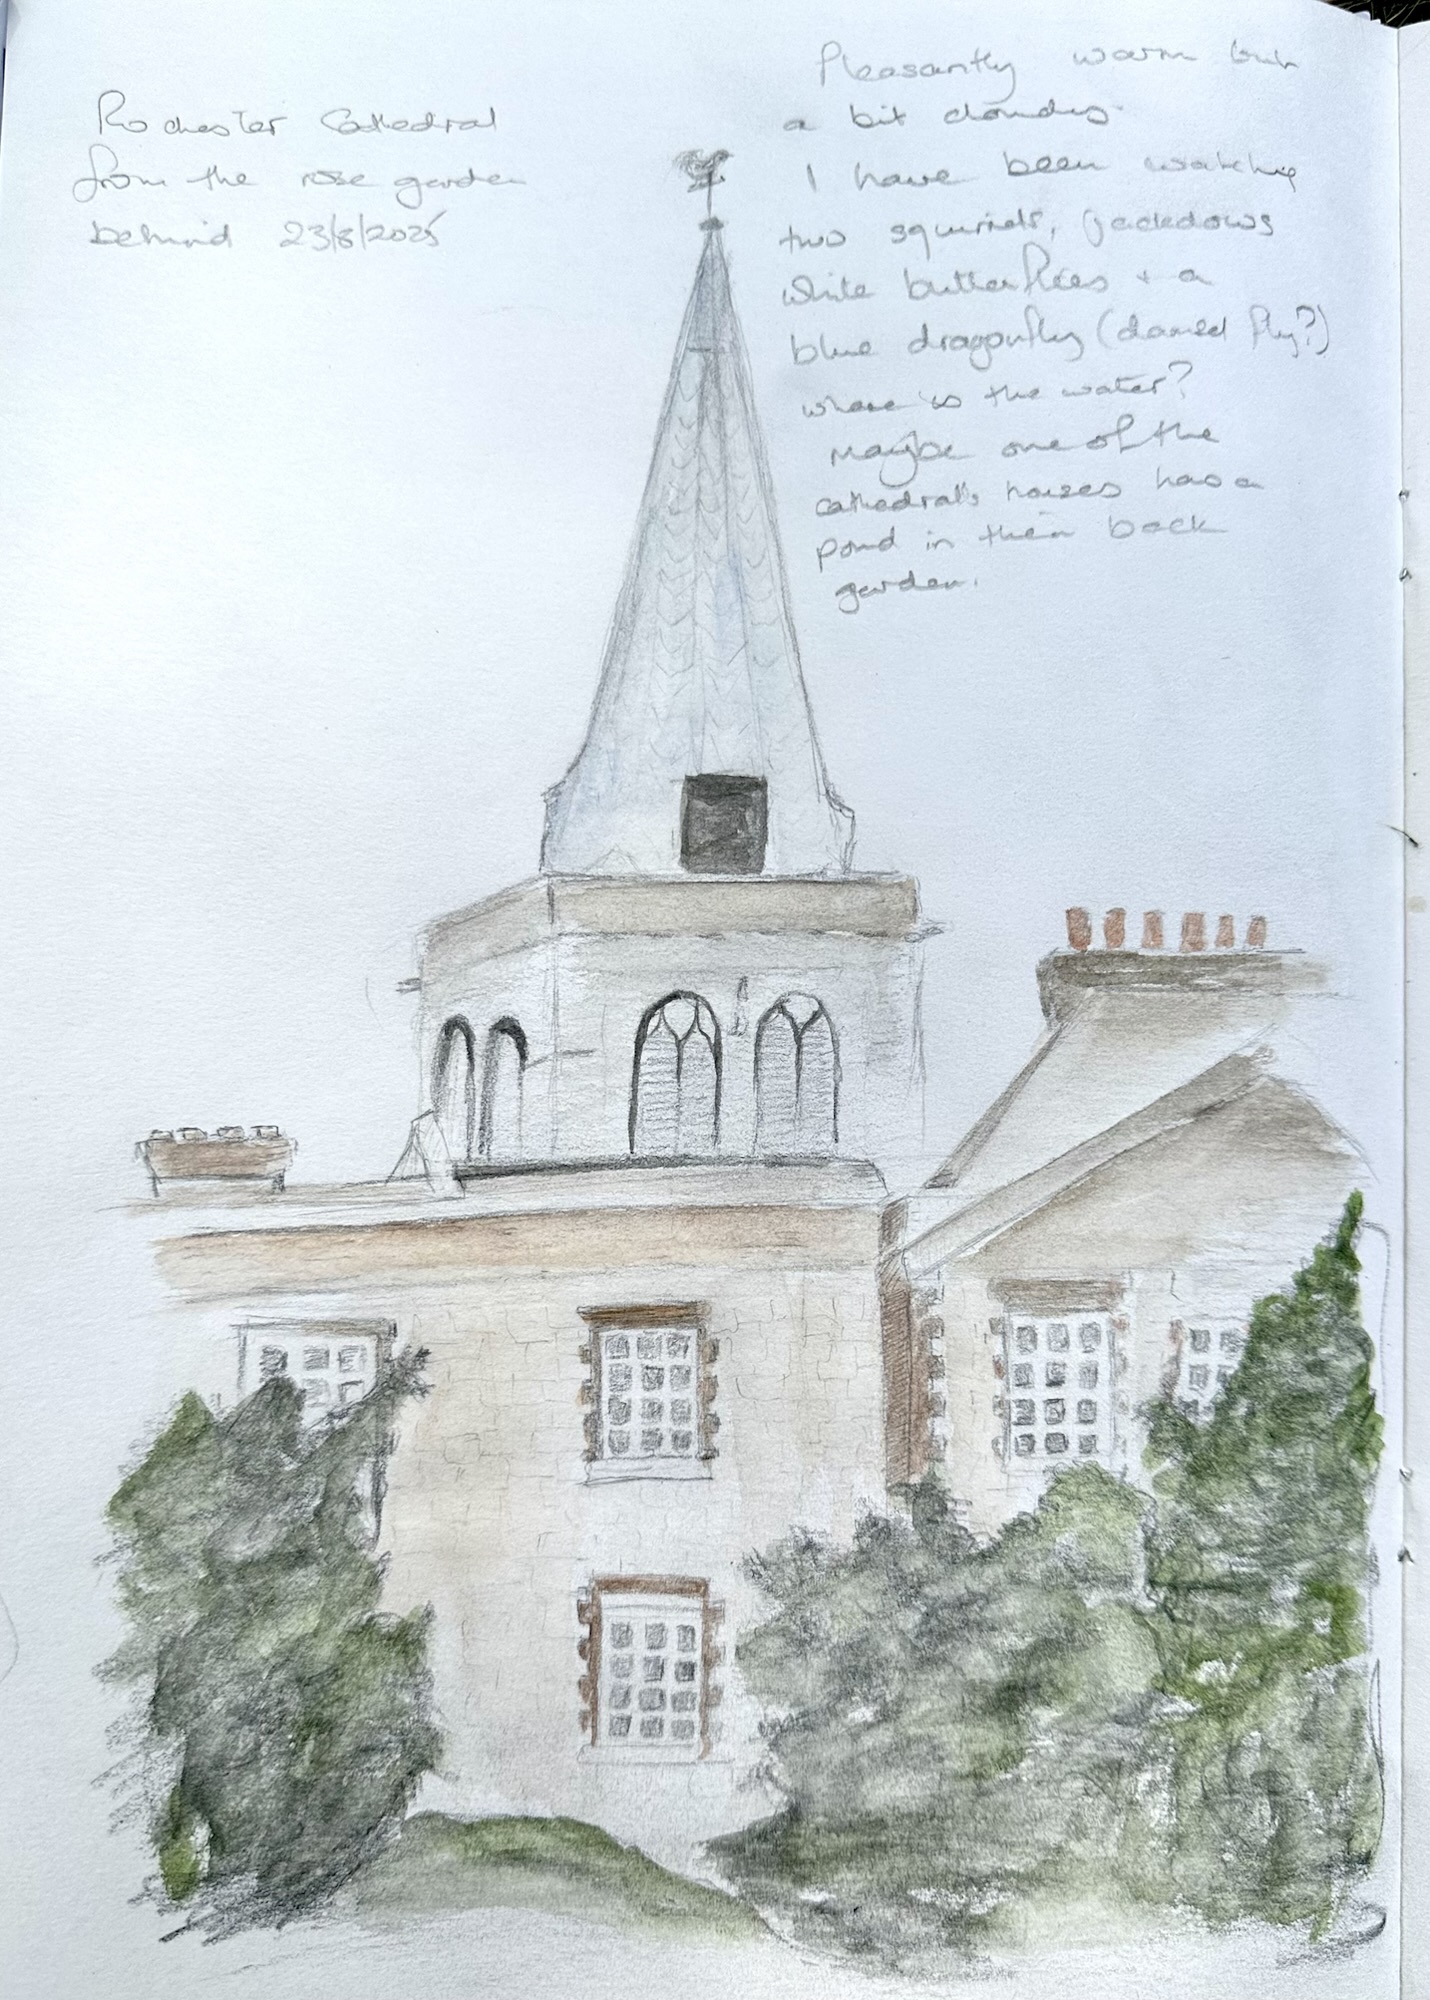 Rochester Cathedral
from the rose garden
behind 23/8/2025
Pleasantly warm but
a bit cloudy.
I have been watching
two squirrels, jackdaws
white butterflies + a
blue dragonfly (damsel fly?)
where is the water?
Maybe one of the
cathedral's houses has a
pond in their back
garden.